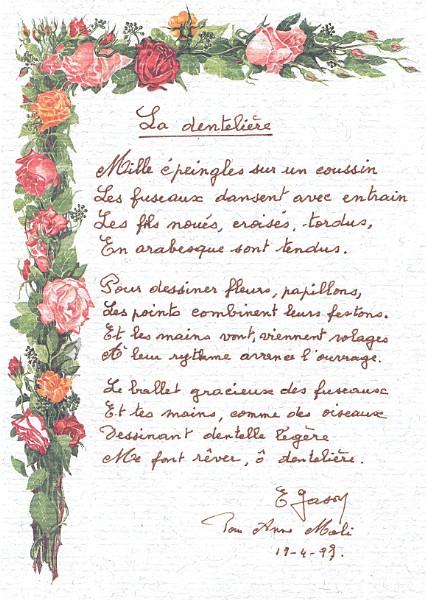 La dentelière
Mille épingles sur un coussin
Les fuseaux dansent avec entrain
Les fils noués, croisés, tordus,
En arabesque sont tendus.
Pour dessiner fleurs, papillons,
Les points combinent leurs festons.
Et les mains vont, viennent volages
A leur rythme avance l'ouvrage.
Le ballet gracieux des fuseaux
Et tes mains, comme des oiseaux
Dessinant dentelle légère
Me font rêver, ô dentelière.
E
Pour Anne